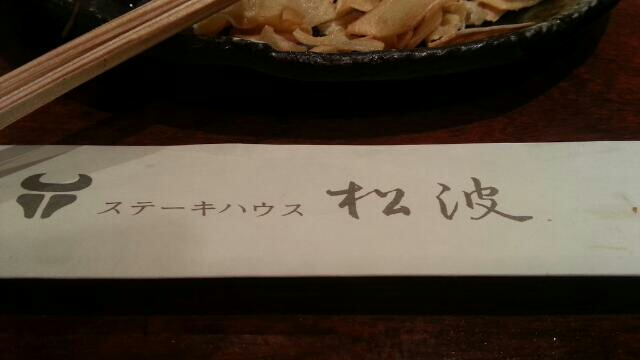 ステーキハウス 松波